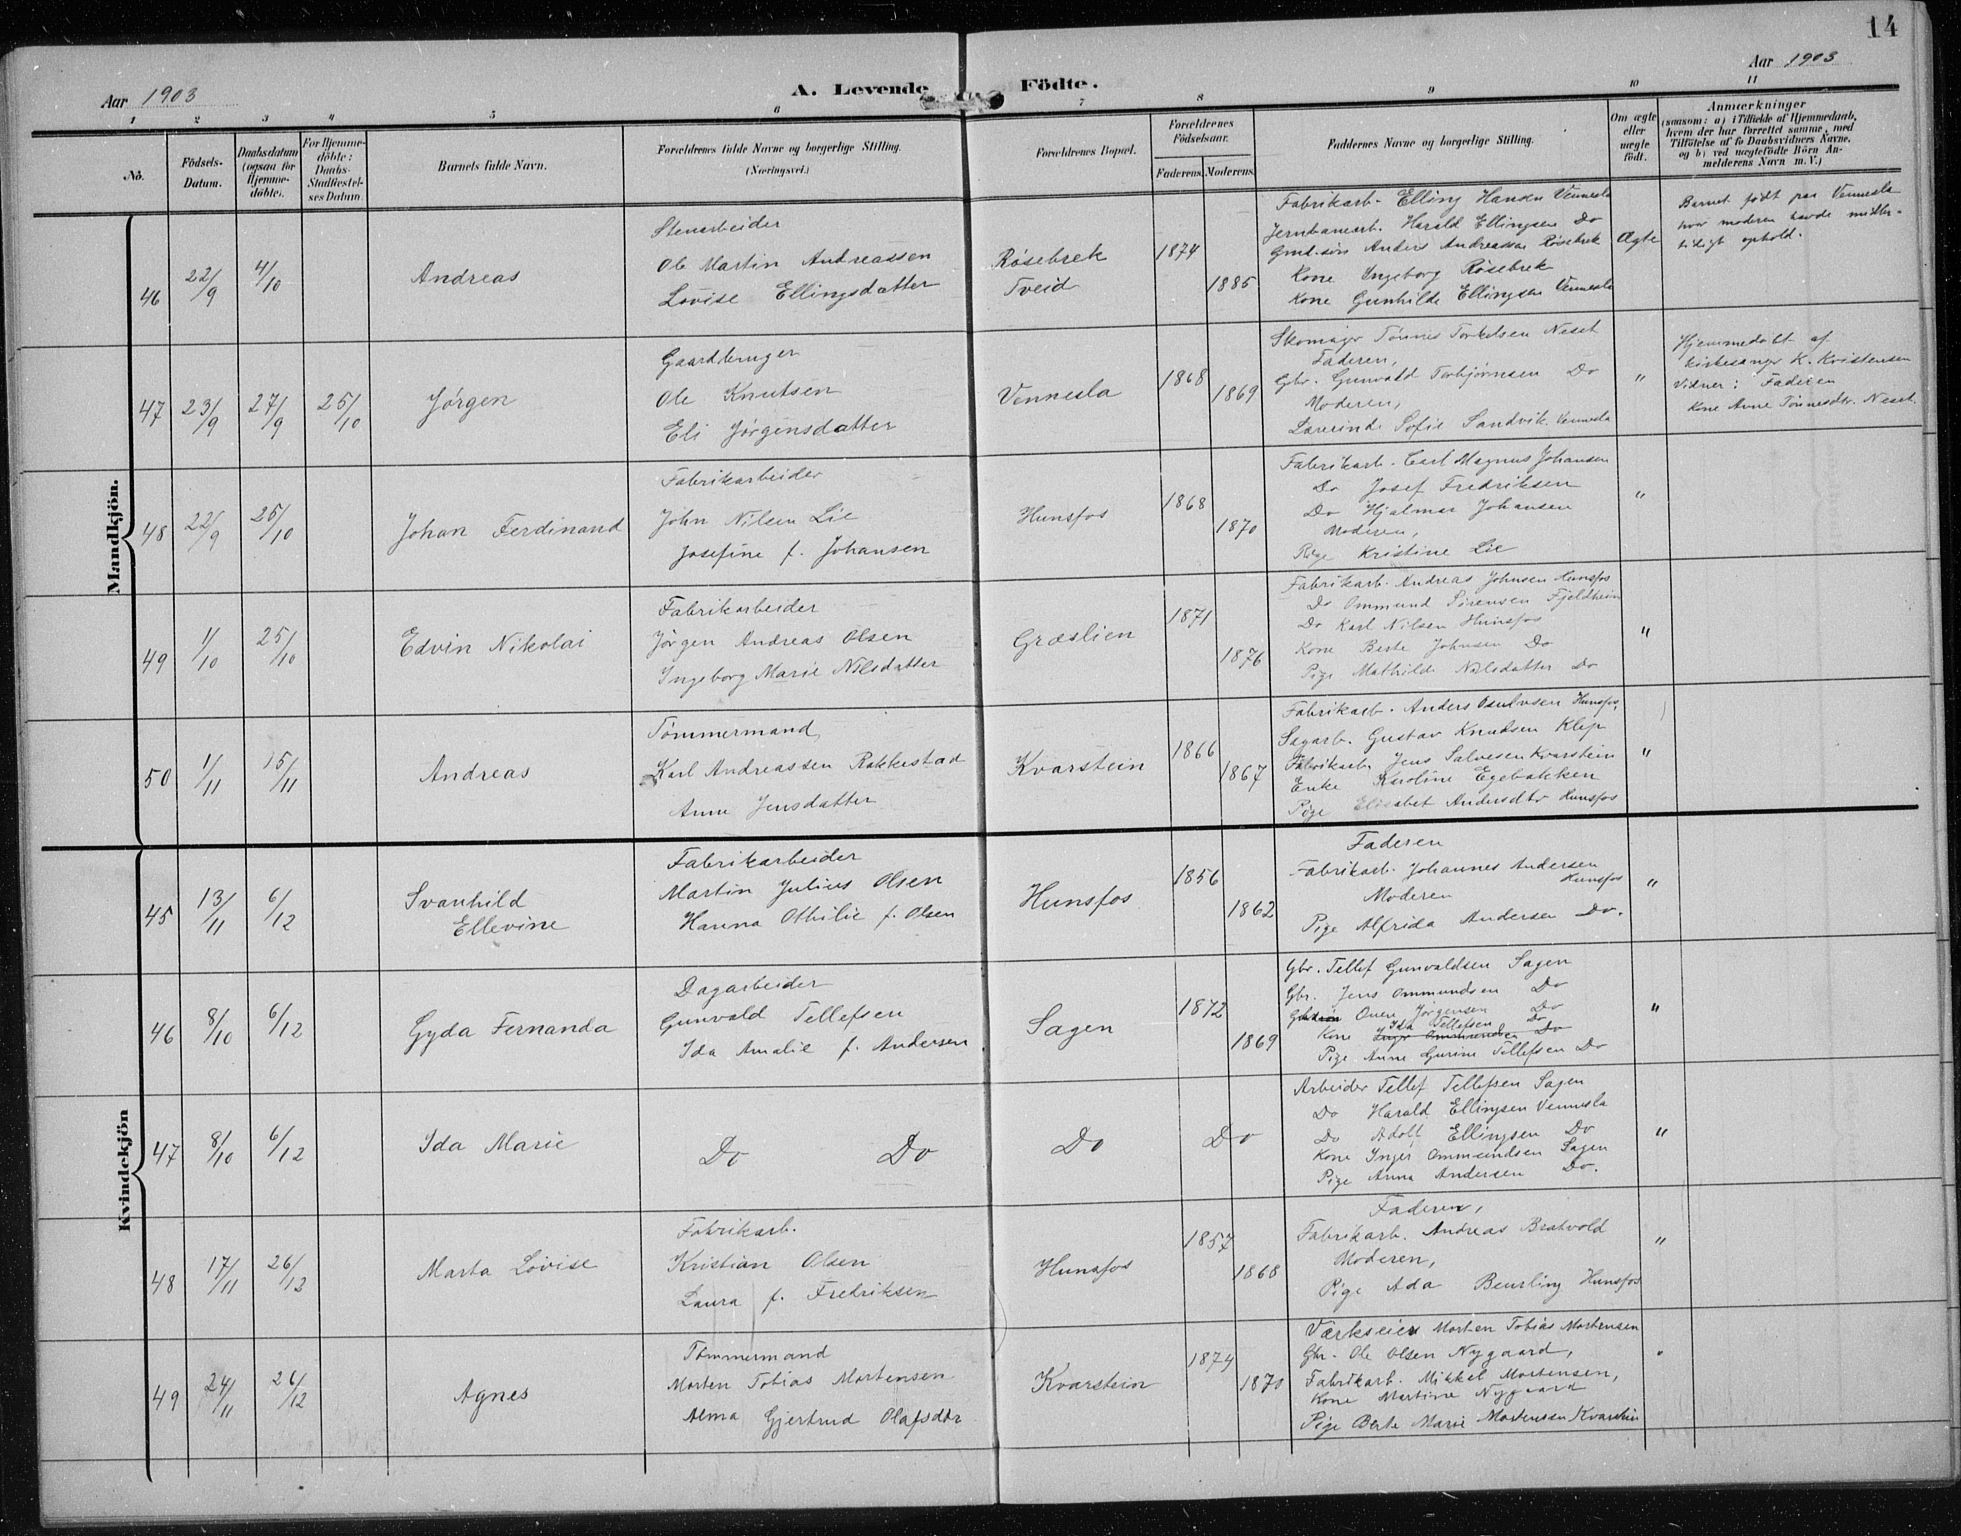 14
Aar 1903
A. Levende Födte.
Aar 1903
1 2 3 4 5 6 7 8 9 10 11
No.
Födsels-Datum.
Daabsdatum (ogsaa for Hjemmedöbte).
For Hjemmedöbte: Daabs-Stadfæstelses Datum
Barnets fulde Navn.
Forældrenes fulde Navne og borgerlige Stilling.
(Næringsvei.)
Forældrenes Bopæl.
Forældrenes Födselsaar.
Faderens. Moderens.
Faddernes Navne og borgerlige Stilling.
Om ægte eller uægte födt.
Anmærkninger
(saasom: a) i Tilfælde af Hjemmedaab, hvem der har forrettet samme, med Tilföielse af to Daabsvidners Navne, og b) ved uægtefödte Börn Anmelderens Navn m. V.)
Mandkjön.
46 22/9 4/10
Andreas
Stenarbeider
Ole Martin Andreassen
Lovise Ellingsdatter
Røsebrek
Tveid
1874
1885
Fabrikarb. Elling Hansen Vennesla
Jernbanearb. Harald Ellingsen Do
Gmd.søn Anders Andreassen Røsebrek
Kone Ingeborg Røsebrek
Kone Gunhilde Ellingsen Vennesla
Ægte
Barnet født paa Vennesla
hvor moderen havde midler-
tidigt ophold.
47 23/9 27/9 25/10
Jørgen
Gaardbruger
Ole Knutsen
Eli Jørgensdatter
Vennesla
1868
1869
Skomager Tønnes Torkelsen Neset
Faderen,
Gbr. Gunvald Torbjørnsen Do
Moderen,
Lærerinde Sofie Sandvik Vennesla
"
Hjemmedøbt af
kirkesanger K. Kristensen
Vidner: Faderen
Kone Anne Tønnesdtr. Neset.
48 22/9 25/10
Johan Ferdinand
Fabrikarbeider
John Nilsen Lie
Josefine f. Johansen
Hunsfos
1868
1870
Fabrikarb. Carl Magnus Johansen
Do Josef Fredriksen
Do Hjalmar Johansen
Moderen,
Pige Kristine Lie
"
49 1/10 25/10
Edvin Nikolai
Fabrikarbeider
Jørgen Andreas Olsen
Ingeborg Marie Nilsdatter
Græslien
1871
1876
Fabrikarb. Andreas Johnsen Hunsfos
Do Ommund Sørensen Fjeldheim
Do Karl Nilsen Hunsfos
Kone Berte Johnsen Do
Pige Mathilde Nilsdatter Do
"
50 1/11 15/11
Andreas
Tømmermand
Karl Andreassen Rakkestad
Anne Jensdatter
Kvarstein
1866
1867
Fabrikarb. Anders Hunsfos,
Sagarb. Gustav Knudsen Klep
Fabrikarb. Jens Salvesen Kvarstein
Enke Karoline Egebakken
Pige Elisabet Andersdtr Hunsfos
"
Kvindekjön
45 13/11 6/12
Svanhild
Ellevine
Fabrikarbeider
Martin Julius Olsen
Hanna Othilie f. Olsen
Hunsfos
1856
1862
Faderen
Fabrikarb. Johannes Andersen
Hunsfos
Moderen
Pige Alfrida Andersen Do.
"
46 8/10 6/12
Gyda Fernanda
Dagarbeider
Gunvald Tellefsen
Ida Amalie f. Andersen
Sagen
1872
1869
Gbr. Tellef Gunvaldsen Sagen
Gbr. Jens Ommundsen Do
Ouen Jørgensen Do
Ida Tellefsen Do
Kone Inger Ommundsen Do
Pige Anne Gurine Tellefsen Do
"
47 8/10 6/12
Ida Marie
Do Do
Do
Do
Arbeider Tellef Tellefsen Sagen
Do Harald Ellingsen Vennesla
Do Adolf Ellingsen Do
Kone Inger Ommundsen Sagen
Pige Anna Andersen Do.
"
48 17/11 26/12
Marta Lovise
Fabrikarb.
Kristian Olsen
Laura f. Fredriksen
Hunsfos
1857
1868
Faderen,
Fabrikarb. Andreas Bratvold
Moderen,
Pige Ada Beurling Hunsfos
"
49 24/11 26/12
Agnes
Tømmermand
Morten Tobias Mortensen
Alma Gjertrud Olafsdtr
Kvarstein
1874
1870
Værkseier Morten Tobias Mortensen
Gbr. Ole Olsen Nygaard,
Fabrikarb. Mikkel Mortensen,
Kone Martine Nygaard
Pige Berte Marie Mortensen Kvarstein
"